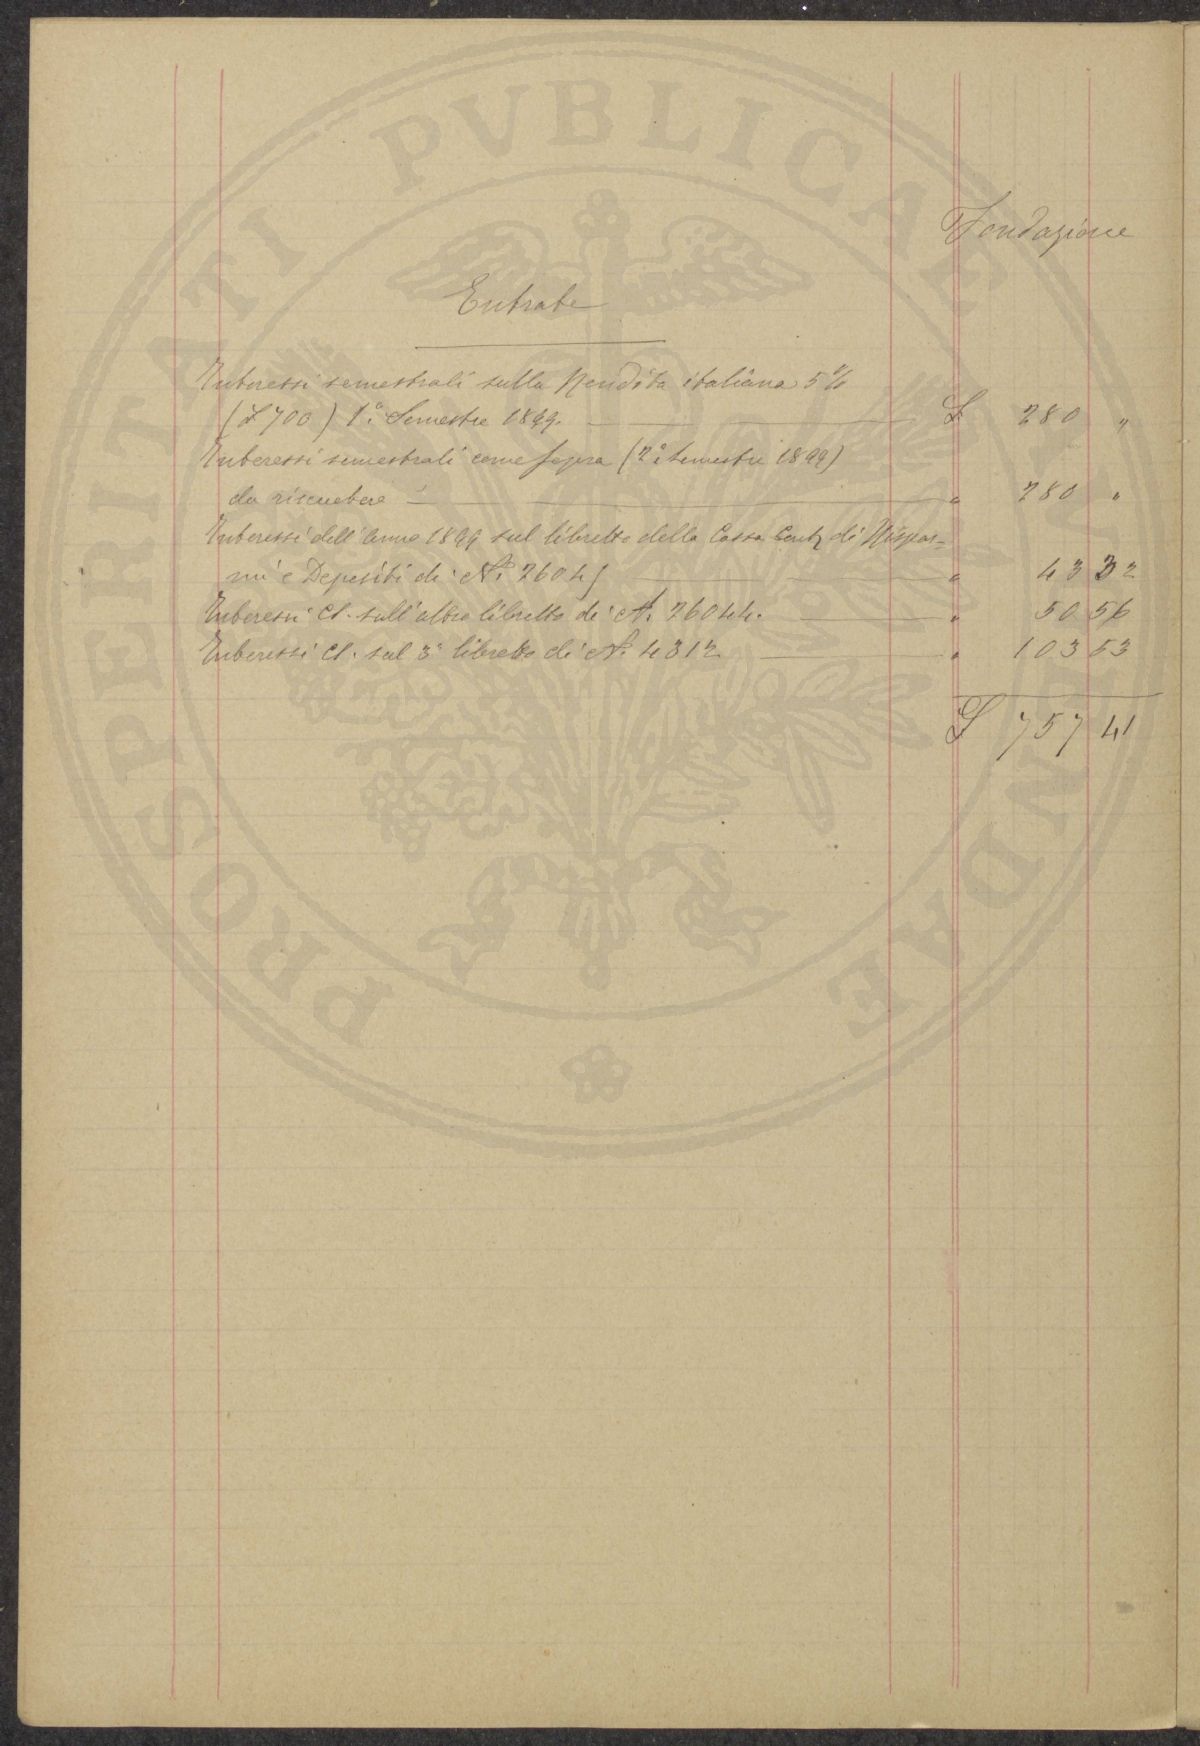 Fondazione
Entrate
Interessi semestrali sulla Rendita italiana 5%
(£ 700) 1.° Semestre 1899. £ 280 "
Interessi semestrali come sopra (2.° Semestre 1899)
da riscuotere " 280 "
Interessi dell'anno 1899 sul libretto della Cassa Cent. di Rispar=
mi e Depositi di N.° 26045 " 43 32
Interessi Cs. sull'altro libretto di N. 26044. " 50 56
Interessi Cs. sul 3° libretto di N. 4312 " 103 53
£ 757 41
PROSPERITATI PVBLICAE AVGENDAE